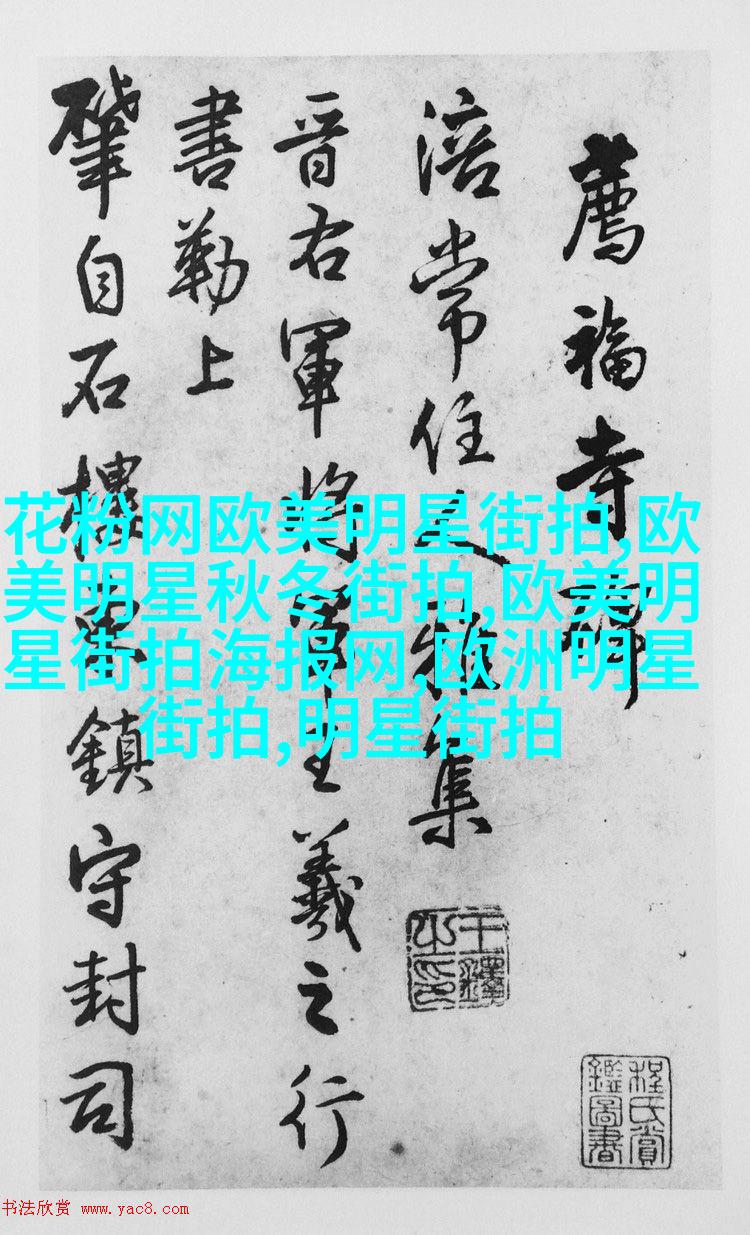 薦福寺碑
涪常住集
晋右軍將軍王羲之行
書勒上
肇自石樓鎮守封司
花粉网欧美明星街拍,欧
美明星秋冬街拍,欧美明
星街拍海报网,欧洲明星
街拍,明星街拍
王鐸之印
程氏賞鑑圖書
书法欣赏 www.yac8.com